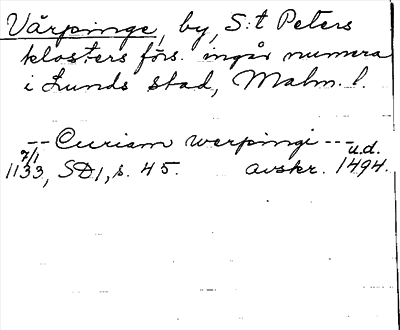 Värpinge, by, S:t Peters
klosters förs. ingår numera
i Lunds stad, Malm. l.
-- Curiam werpingi --- u.d.
7/1
1133, SD1, s. 45. avskr. 1494.